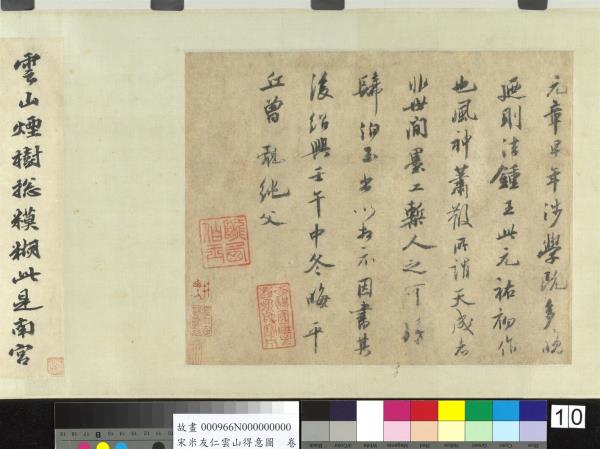 元章早年涉學既多晚
迺則法鍾王此元祐初作
也風神蕭散所謂天成者
非世間墨工槧人之可
歸伯玉出以相示因書其
後紹興壬午中冬晦平
丘曾 純父
雲山煙樹總糢糊此是南宮
故畫 000966N000000000
宋米友仁雲山得意圖 卷
10